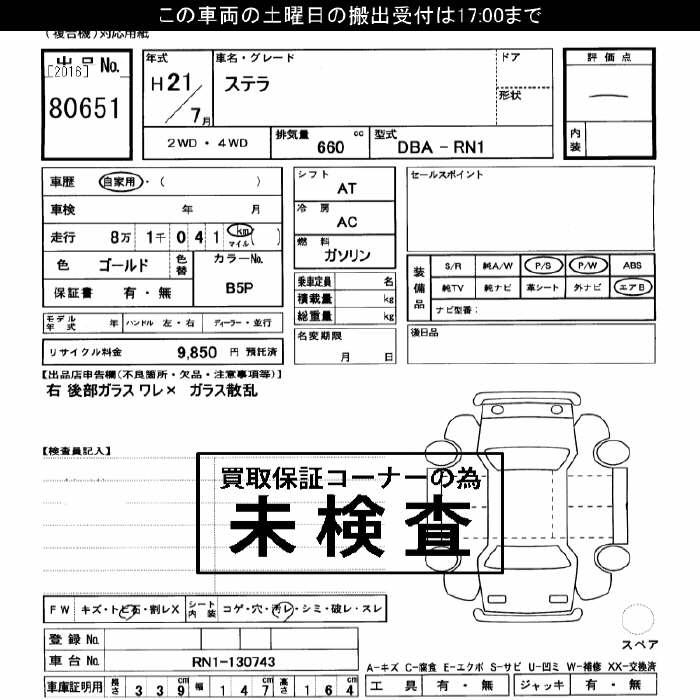 この車両の土曜日の搬出受付は17:00まで
(複合機)対応用紙
出品No.
[2016]
80651
年式
H21/7月
車名・グレード
ステラ
ドア
形状
2WD・4WD
排気量 660 cc
型式 DBA-RN1
評価点
内装
車歴 自家用・( )
車検 年 月
走行 8万 1千 0 4 1 km マイル( )
色 ゴールド 色替
カラーNo.
B5P
保証書 有・無
シフト
AT
冷房
AC
燃料
ガソリン
乗車定員 名
積載量 kg
総重量 kg
セールスポイント
装備品
S/R 純A/W P/S P/W ABS
純TV 純ナビ 革シート 外ナビ エアB
ナビ型番:
モデル年式 年 ハンドル 左・右 ディーラー・並行
リサイクル料金 9,850 円 預託済
名変期限
月 日
後日品
【出品店申告欄(不良箇所・欠品・注意事項等)】
右 後部ガラス ワレ× ガラス散乱
【検査員記入】
買取保証コーナーの為
未検査
FW キズ・トビ石・割レX シート内装 コゲ・穴・汚レ・シミ・破レ・スレ
登録No.
車台No. RN1-130743
車庫証明用 長さ 339cm 幅 147cm 高さ 164cm
スペア
A-キズ C-腐食 E-エクボ S-サビ U-凹ミ W-補修 XX-交換済
工具 有・無 ジャッキ 有・無